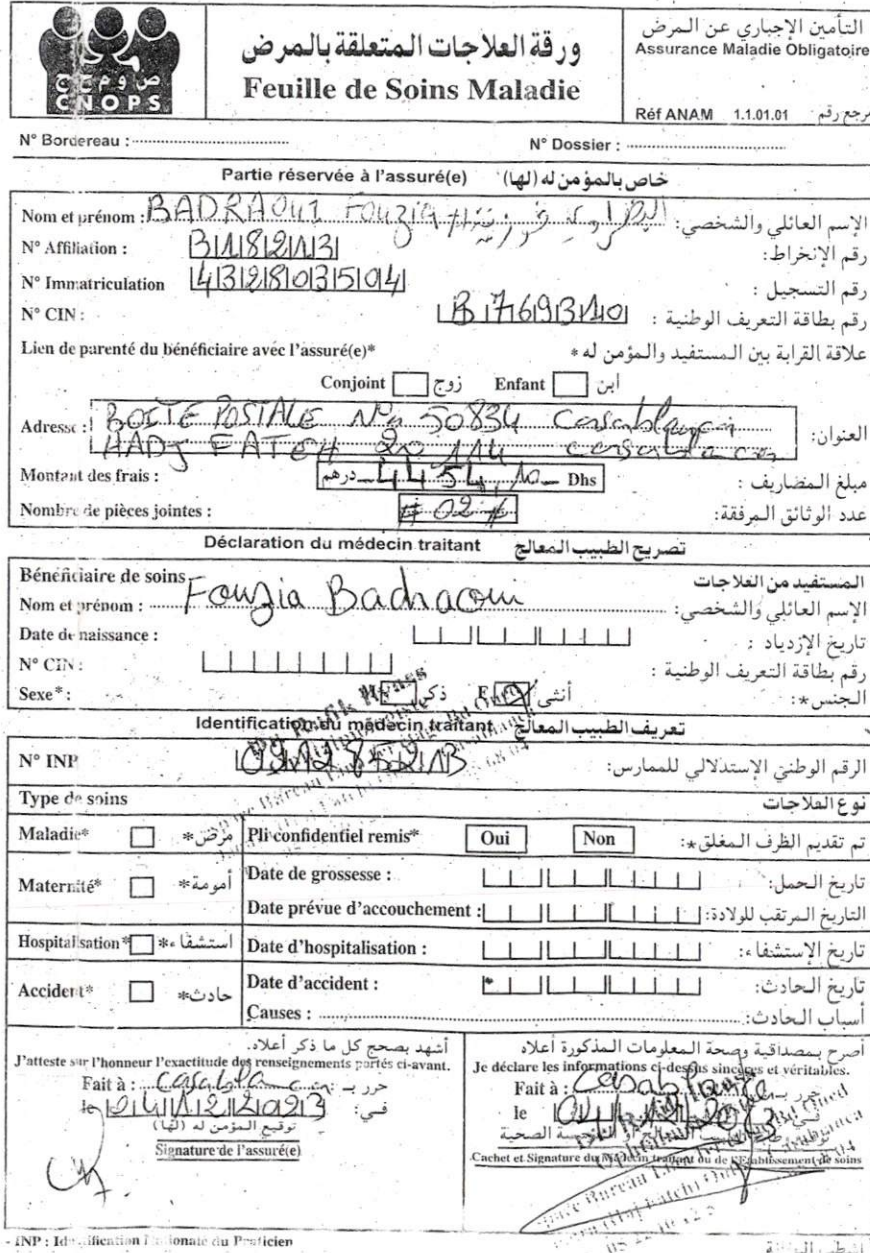 ص و م ح ح
CNOPS
ورقة العلاجات المتعلقة بالمرض
Feuille de Soins Maladie
التأمين الإجباري عن المرض
Assurance Maladie Obligatoire
Réf ANAM 1.1.01.01 مرجع رقم
N° Bordereau :
N° Dossier :
Partie réservée à l'assuré(e) خاص بالمؤمن له (لها)
Nom et prénom : BADRAOUI Fouzia فوزية الإسم العائلي والشخصي:
N° Affiliation : 3182131 رقم الإنخراط:
N° Immatriculation 432803504 رقم التسجيل :
N° CIN : B769340 رقم بطاقة التعريف الوطنية :
Lien de parenté du bénéficiaire avec l'assuré(e)* علاقة القرابة بين المستفيد والمؤمن له *
Conjoint زوج Enfant ابن
Adresse : BOITE POSTALE N° 50834 Casablanca العنوان:
HADJ FATEH 20 114 casablanca
Montant des frais : درهم 4454,10 Dhs مبلغ المضاريف :
Nombre de pièces jointes : # 02 # عدد الوثائق المرفقة:
Déclaration du médecin traitant تصريح الطبيب المعالج
Bénéficiaire de soins المستفيد من العلاجات
Nom et prénom : Fouzia Badraoui الإسم العائلي والشخصي:
Date de naissance : تاريخ الإزدياد :
N° CIN : رقم بطاقة التعريف الوطنية :
Sexe* : ذكر F أنثى الجنس *:
Identification du médecin traitant تعريف الطبيب المعالج
N° INP الرقم الوطني الإستدلالي للممارس:
Type de soins نوع العلاجات
Maladie* مرض* Pli confidentiel remis* Oui Non تم تقديم الظرف المغلق*:
Maternité* أمومة* Date de grossesse : تاريخ الحمل:
Date prévue d'accouchement : التاريخ المرتقب للولادة:
Hospitalisation* استشفاء* Date d'hospitalisation : تاريخ الإستشفاء:
Accident* حادث* Date d'accident : تاريخ الحادث:
Causes : أسباب الحادث:
أشهد بصحح كل ما ذكر أعلاه.
J'atteste sur l'honneur l'exactitude des renseignements portés ci-avant.
Fait à : Casablanca حرر بـ
le في:
توقيع المؤمن له (لها)
Signature de l'assuré(e)
أصرح بمصداقية وصحة المعلومات المذكورة أعلاه
Je déclare les informations ci-dessus sincères et véritables.
Fait à : Casablanca حرر بـ
le في:
Cachet et Signature du Médecin traitant ou de l'Etablissement de soins
- INP : Identification Nationale du Praticien